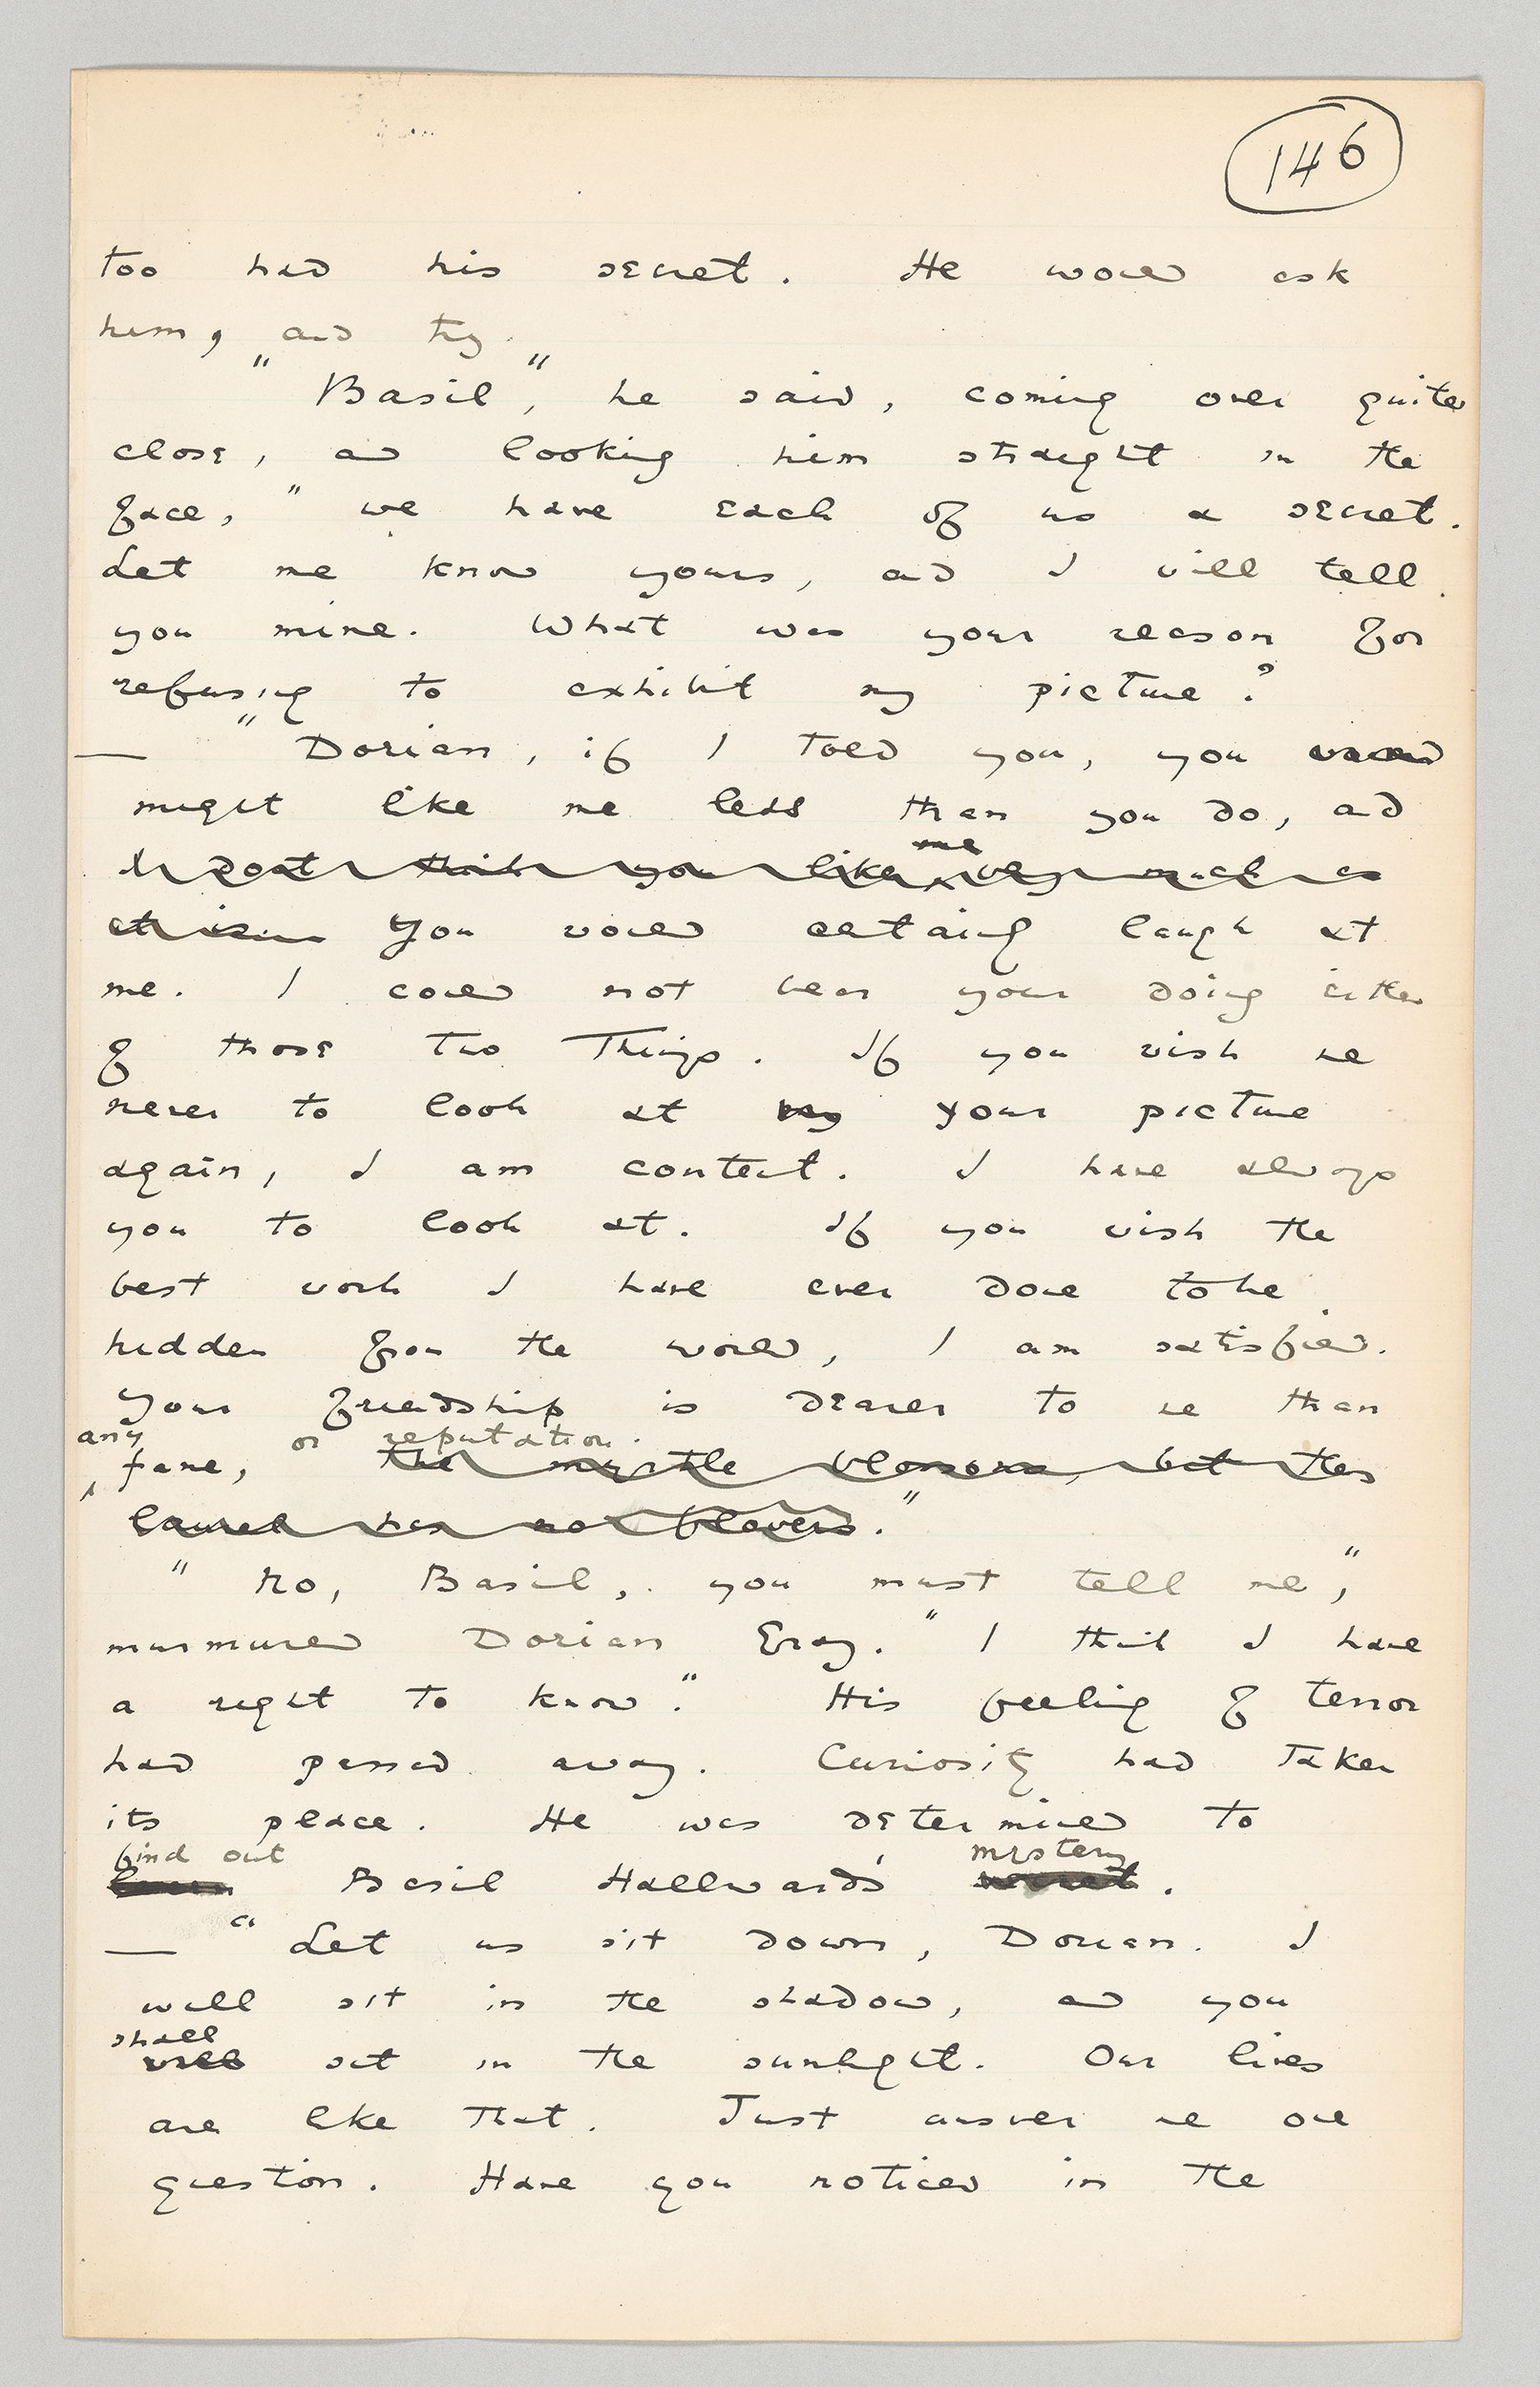 146
too had his secret. He would ask
him, and try.
"Basil", he said, coming over quite
close, and looking him straight in the
face, "we have each of us a secret.
Let me know yours, and I will tell
you mine. What was your reason for
refusing to exhibit my picture?
— "Dorian, if I told you, you would
might like me less than you do, and
I don't think you like me very much as
it is. You would certainly laugh at
me. I could not bear your doing either
of those two things. If you wish me
never to look at my your picture
again, I am content. I have always
you to look at. If you wish the
best work I have ever done to be
hidden from the world, I am satisfied.
Your friendship is dearer to me than
any or reputation.
fame, the myrtle blossoms, but the
laurel has no flowers."
"No, Basil, you must tell me,"
murmured Dorian Gray. "I think I have
a right to know." His feeling of terror
had passed away. Curiosity had taken
its place. He was determined to
find out mystery
learn Basil Hallward's secret.
— "Let us sit down, Dorian. I
will sit in the shadow, and you
shall
will sit in the sunlight. Our lives
are like that. Just answer me one
question. Have you noticed in the